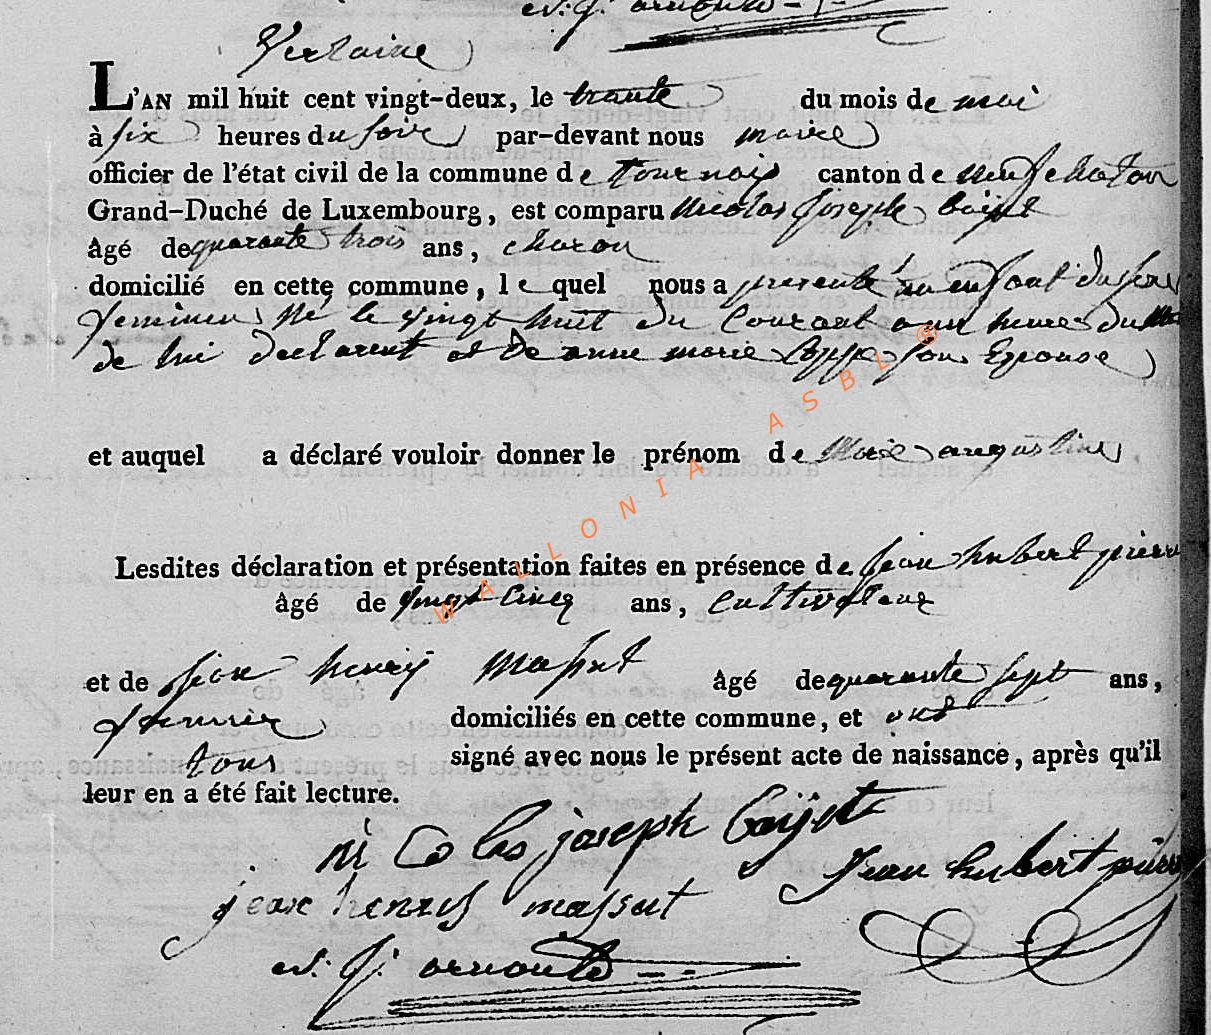 N. J. arnould
Verlaine
L'AN mil huit cent vingt-deux, le trante du mois de mai
à six heures du soire par-devant nous maire
officier de l'état civil de la commune de tournais canton de neufchatau
Grand-Duché de Luxembourg, est comparu nicolas joseph
âgé de quarante trois ans, charon
domicilié en cette commune, le quel nous a presenté un enfant du sexe
feminin Né le vingt huit du Courant a un heure du
de lui declarent et De anne marie son Epouse
et auquel a déclaré vouloir donner le prénom de Marie augustine
Lesdites déclaration et présentation faites en présence de jean hubert pierre
âgé de vingt Cinq ans, Cultivateur
et de jean henry massut âgé de quarante sept ans,
domiciliés en cette commune, et ont
tous signé avec nous le présent acte de naissance, après qu'il
leur en a été fait lecture.
ni Colas joseph
jean hubert pierre
jean henry massut
N. J. arnould
WALLONIA ASBL ®